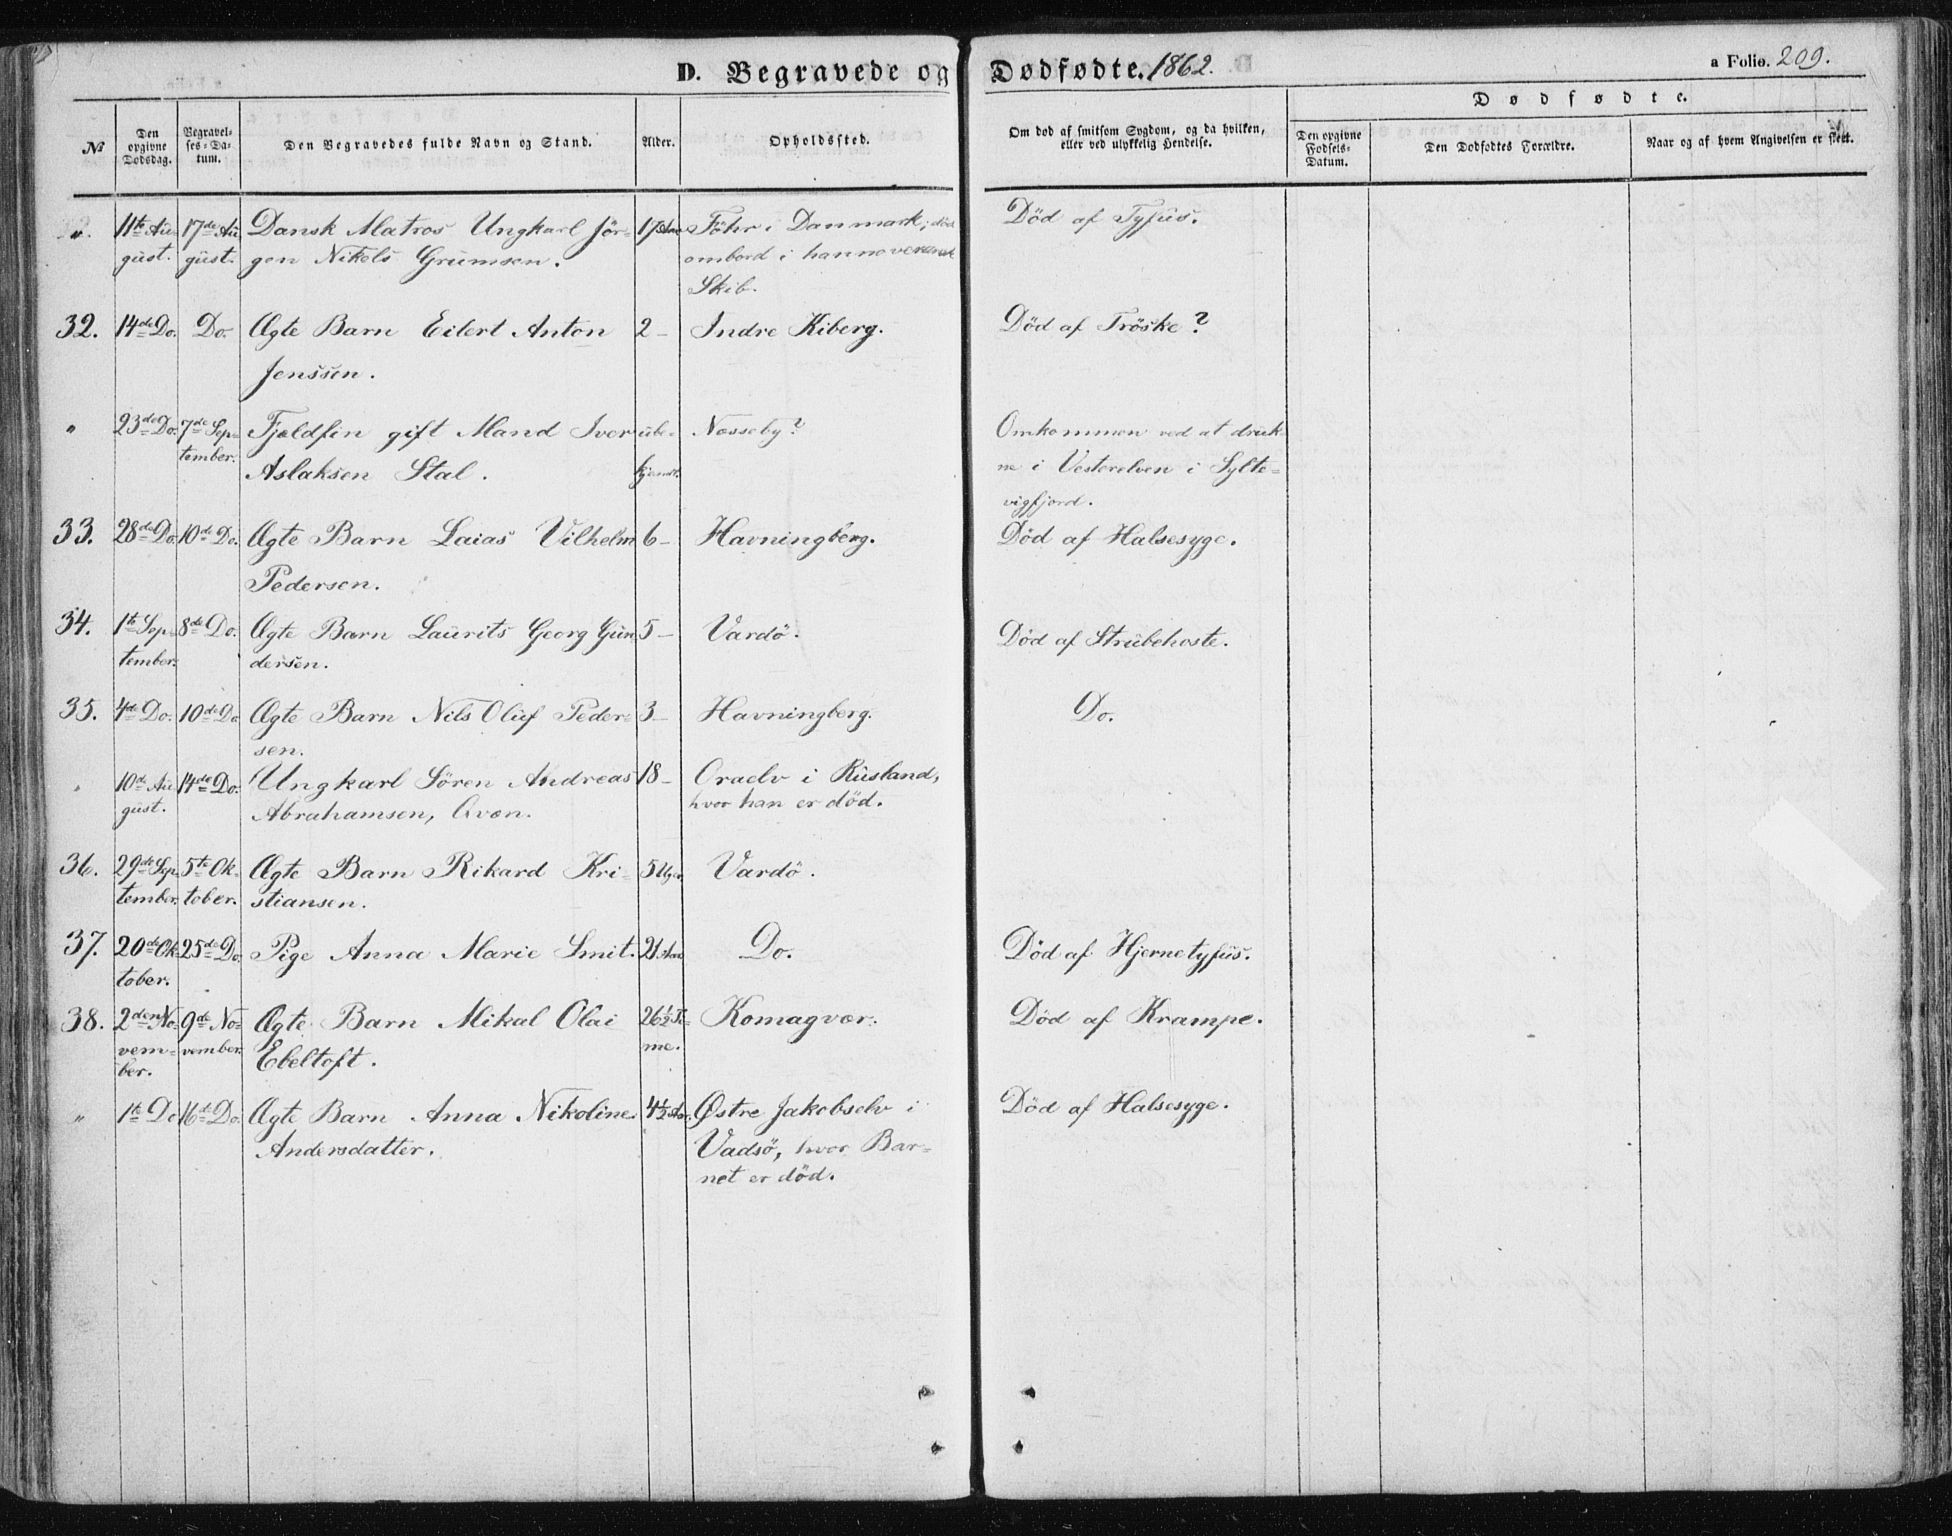 D. Begravede og Dødfødte. 1862. a Folio. 209.
Dødfødte.
№ Den opgivne Dødsdag. Begravelses-Datum. Den Begravedes fulde Navn og Stand. Alder. Opholdssted. Om død af smitsom Sygdom, og da hvilken, eller ved ulykkelig Hendelse. Den opgivne Fødsels-Datum. Den Dødfødtes Forældre. Naar og af hvem Angivelsen er skeet.
" 11te Au- 17de Au Dansk Matros Ungkarl Jör- 17 Aar Föhr i Danmark, död Död af Tyfus.
gust. gust. gen Nikels Grumsen. ombord i hannoveransk
Skib.
32. 14de Do. Do. Ægte Barn Eilert Anton 2 - Indre Kiberg. Död af Tröske?
Jenssen.
" 23de Do. 7de Sep- Fjeldfin gift Mand Iver ube- Næsseby? Omkommen ved at druk-
tember. Aslaksen Stal. kjendt. ne i Vesterelven i Sylte-
vigfjord.
33. 28de Do. 10de Do. Ægte Barn Laias Vilhelm 6 - Havningberg. Död af Halsesyge.
Pedersen.
34. 1te Sep- 8de Do. Ægte Barn Laurits Georg Gun 5 - Vardö. Död af Strubehoste.
tember. dersen.
35. 4de Do. 10de Do Ægte Barn Nils Oluf Peder- 3 - Havningberg. Do.
sen.
" 10de Au 14de Do. Ungkarl Sören Andreas 18 - Oraelv i Rusland,
gust. Abrahamsen, Qvæn. hvor han er död.
36. 29de Sep 5te Ok- Ægte Barn Rikard Kri- 5 Uger. Vardö.
tember. tober. stiansen.
37. 20de Ok 25de Do. Pige Anna Marie Smit. 21 Aar Do. Död af Hjernetyfus.
tober.
38. 2den No- 9de No- Ægte Barn Mikal Olai 26½ Ti- Komagvær. Död af Krampe.
vem- vember. Ebeltoft. me.
ber.
" 1te Do 16de Do. Ægte Barn Anna Nikoline 4½ Aar. Østre Jakobselv i Död af Halsesyge.
Andersdatter. Vadsö, hvor Bar-
net er död.